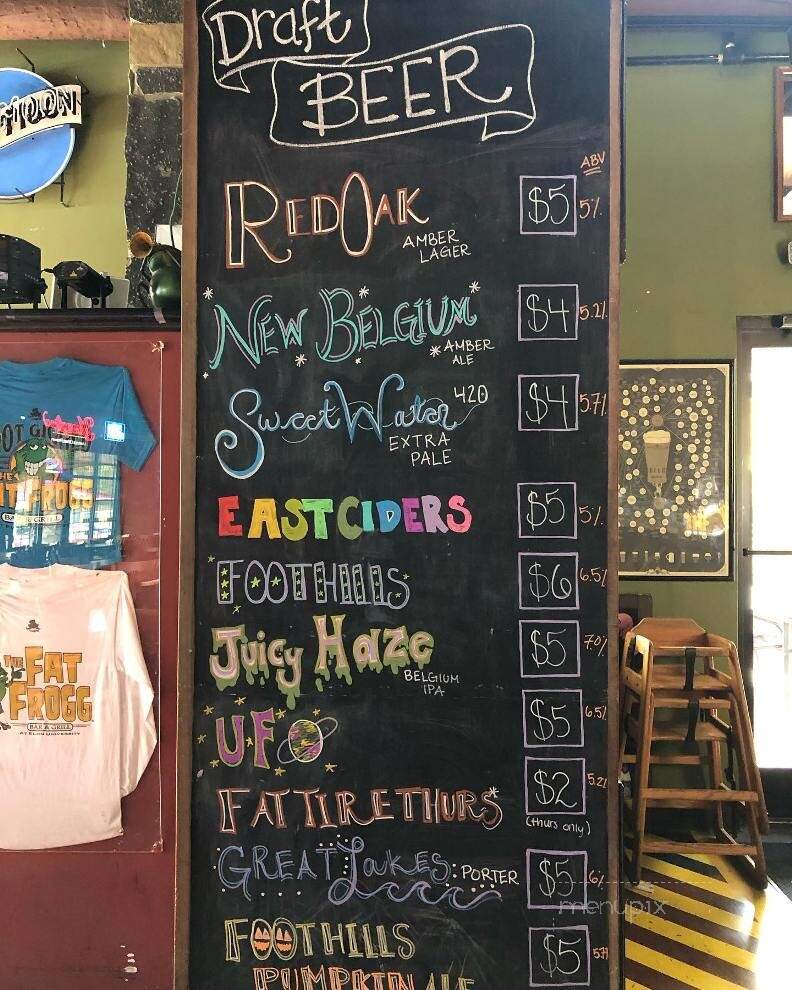 Draft
BEER
ABV
RED OAK $5 5%
AMBER
LAGER
NEW BELGIUM $4 5.2%
* AMBER
ALE
SweetWater 420 $4 5.7%
EXTRA
PALE
EASTCIDERS $5 5%
FOOTHILLS $6 6.5%
Juicy Haze $5 7.0%
BELGIUM
IPA
UFO $5 6.5%
FAT TIRE THURS* $2 5.2%
(thurs only)
GREAT Lakes: PORTER $5 6%
FOOTHILLS $5
PUMPKIN ALE
MOON
FROGG
BAR & GRILL
THE
FAT
FROGG
BAR & GRILL
AT ELON UNIVERSITY
BEER
menupix